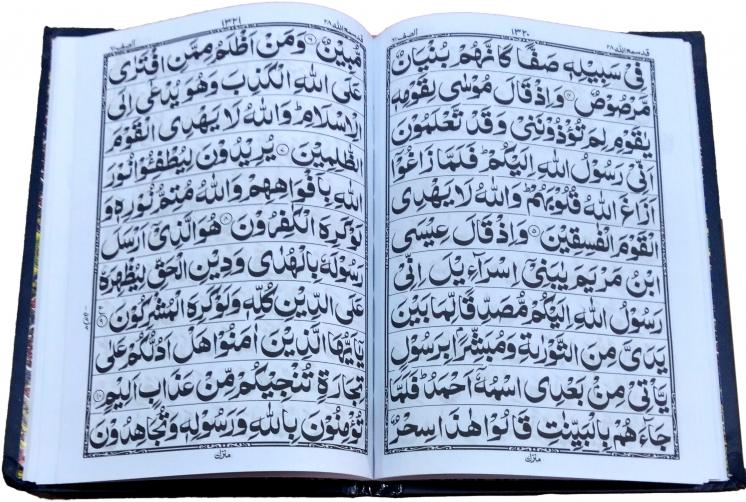 قد سمع الله ٢٨
١٣٢٠
الصف ٦١
فِىْ سَبِيْلِهٖ صَفًّا كَاَنَّهُمْ بُنْيَانٌ
مَّرْصُوْصٌ ۞ وَاِذْ قَالَ مُوْسٰى لِقَوْمِهٖ
يٰقَوْمِ لِمَ تُؤْذُوْنَنِىْ وَقَدْ تَّعْلَمُوْنَ
اَنِّىْ رَسُوْلُ اللّٰهِ اِلَيْكُمْ ؕ فَلَمَّا زَاغُوْۤا
اَزَاغَ اللّٰهُ قُلُوْبَهُمْ ؕ وَاللّٰهُ لَا يَهْدِى
الْقَوْمَ الْفٰسِقِيْنَ ۞ وَاِذْ قَالَ عِيْسَى
ابْنُ مَرْيَمَ يٰبَنِىْۤ اِسْرَآءِيْلَ اِنِّىْ
رَسُوْلُ اللّٰهِ اِلَيْكُمْ مُّصَدِّقًا لِّمَا بَيْنَ
يَدَىَّ مِنَ التَّوْرٰىةِ وَمُبَشِّرًاۢ بِرَسُوْلٍ
يَّاْتِىْ مِنْۢ بَعْدِى اسْمُهٗۤ اَحْمَدُ ؕ فَلَمَّا
جَآءَهُمْ بِالْبَيِّنٰتِ قَالُوْا هٰذَا سِحْرٌ
منزل
قد سمع الله ٢٨
١٣٢١
الصف ٦١
مُّبِيْنٌ ۞ وَمَنْ اَظْلَمُ مِمَّنِ افْتَرٰى
عَلَى اللّٰهِ الْكَذِبَ وَهُوَ يُدْعٰٓى اِلَى
الْاِسْلَامِ ؕ وَاللّٰهُ لَا يَهْدِى الْقَوْمَ
الظّٰلِمِيْنَ ۞ يُرِيْدُوْنَ لِيُطْفِـُٔوْا نُوْرَ
اللّٰهِ بِاَفْوَاهِهِمْ وَاللّٰهُ مُتِمُّ نُوْرِهٖ وَ
لَوْ كَرِهَ الْكٰفِرُوْنَ ۞ هُوَ الَّذِىْۤ اَرْسَلَ
رَسُوْلَهٗ بِالْهُدٰى وَدِيْنِ الْحَقِّ لِيُظْهِرَهٗ
عَلَى الدِّيْنِ كُلِّهٖ وَلَوْ كَرِهَ الْمُشْرِكُوْنَ ۞
يٰۤاَيُّهَا الَّذِيْنَ اٰمَنُوْا هَلْ اَدُلُّكُمْ عَلٰى
تِجَارَةٍ تُنْجِيْكُمْ مِّنْ عَذَابٍ اَلِيْمٍ ۞
تُؤْمِنُوْنَ بِاللّٰهِ وَرَسُوْلِهٖ وَتُجَاهِدُوْنَ
منزل